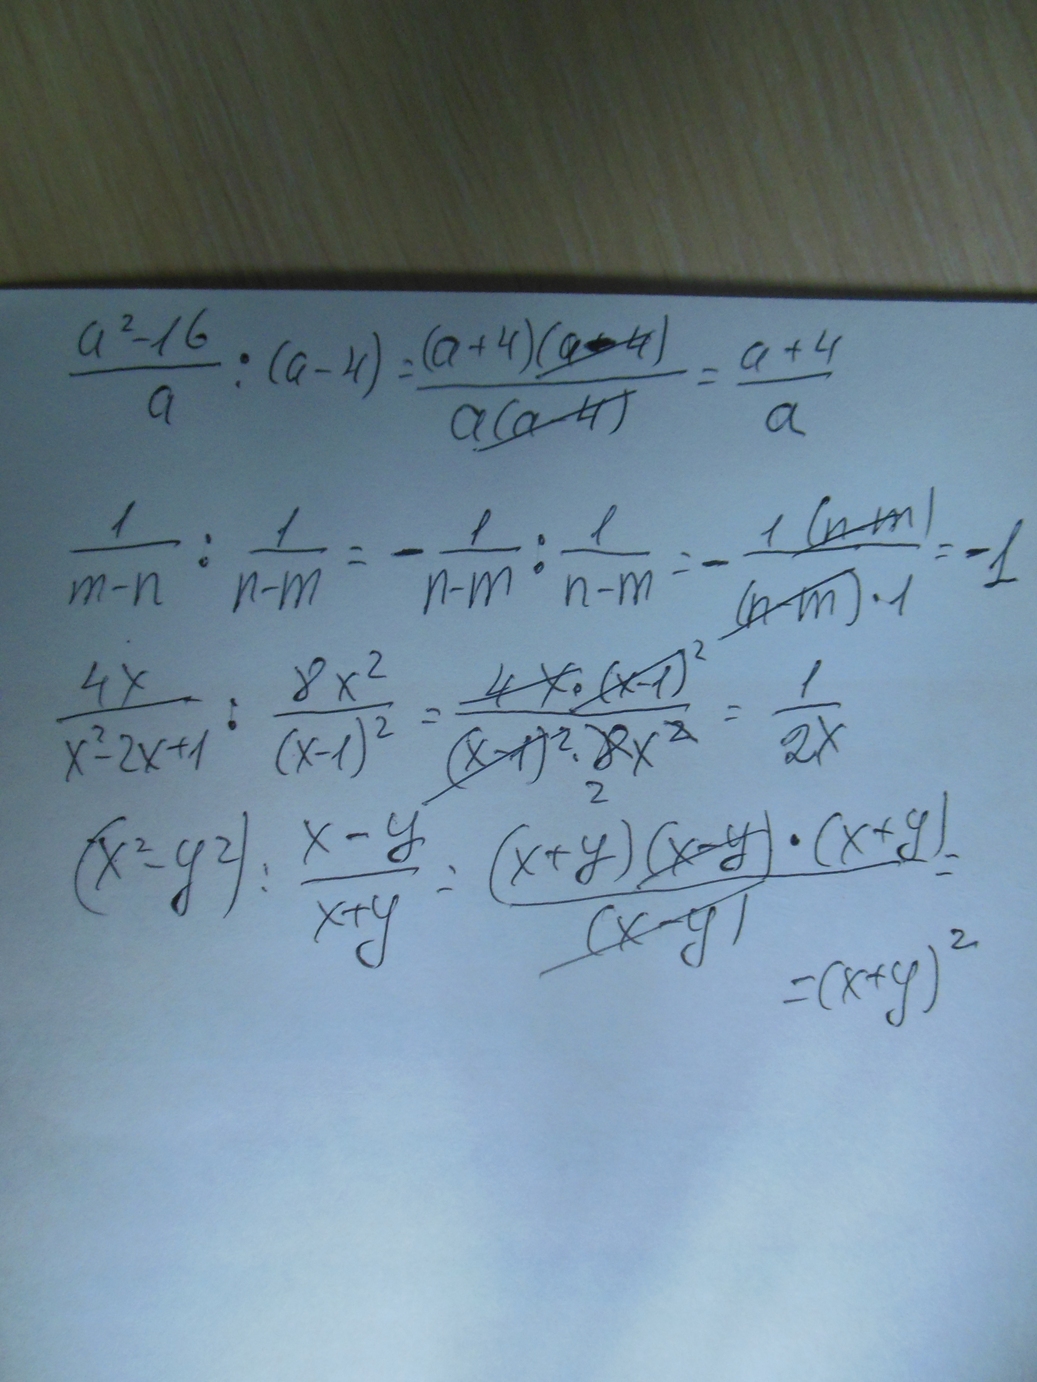 (a²-16)/a : (a-4) = ((a+4)(a-4))/(a(a-4)) = (a+4)/a
1/(m-n) : 1/(n-m) = - 1/(n-m) : 1/(n-m) = - (1(n-m))/((n-m)·1) = -1
4x/(x²-2x+1) : 8x²/(x-1)² = (4x·(x-1)²)/((x-1)²·8x²) = 1/(2x)
2
(x²-y²) : (x-y)/(x+y) = ((x+y)(x-y)·(x+y))/(x-y) =
=(x+y)²